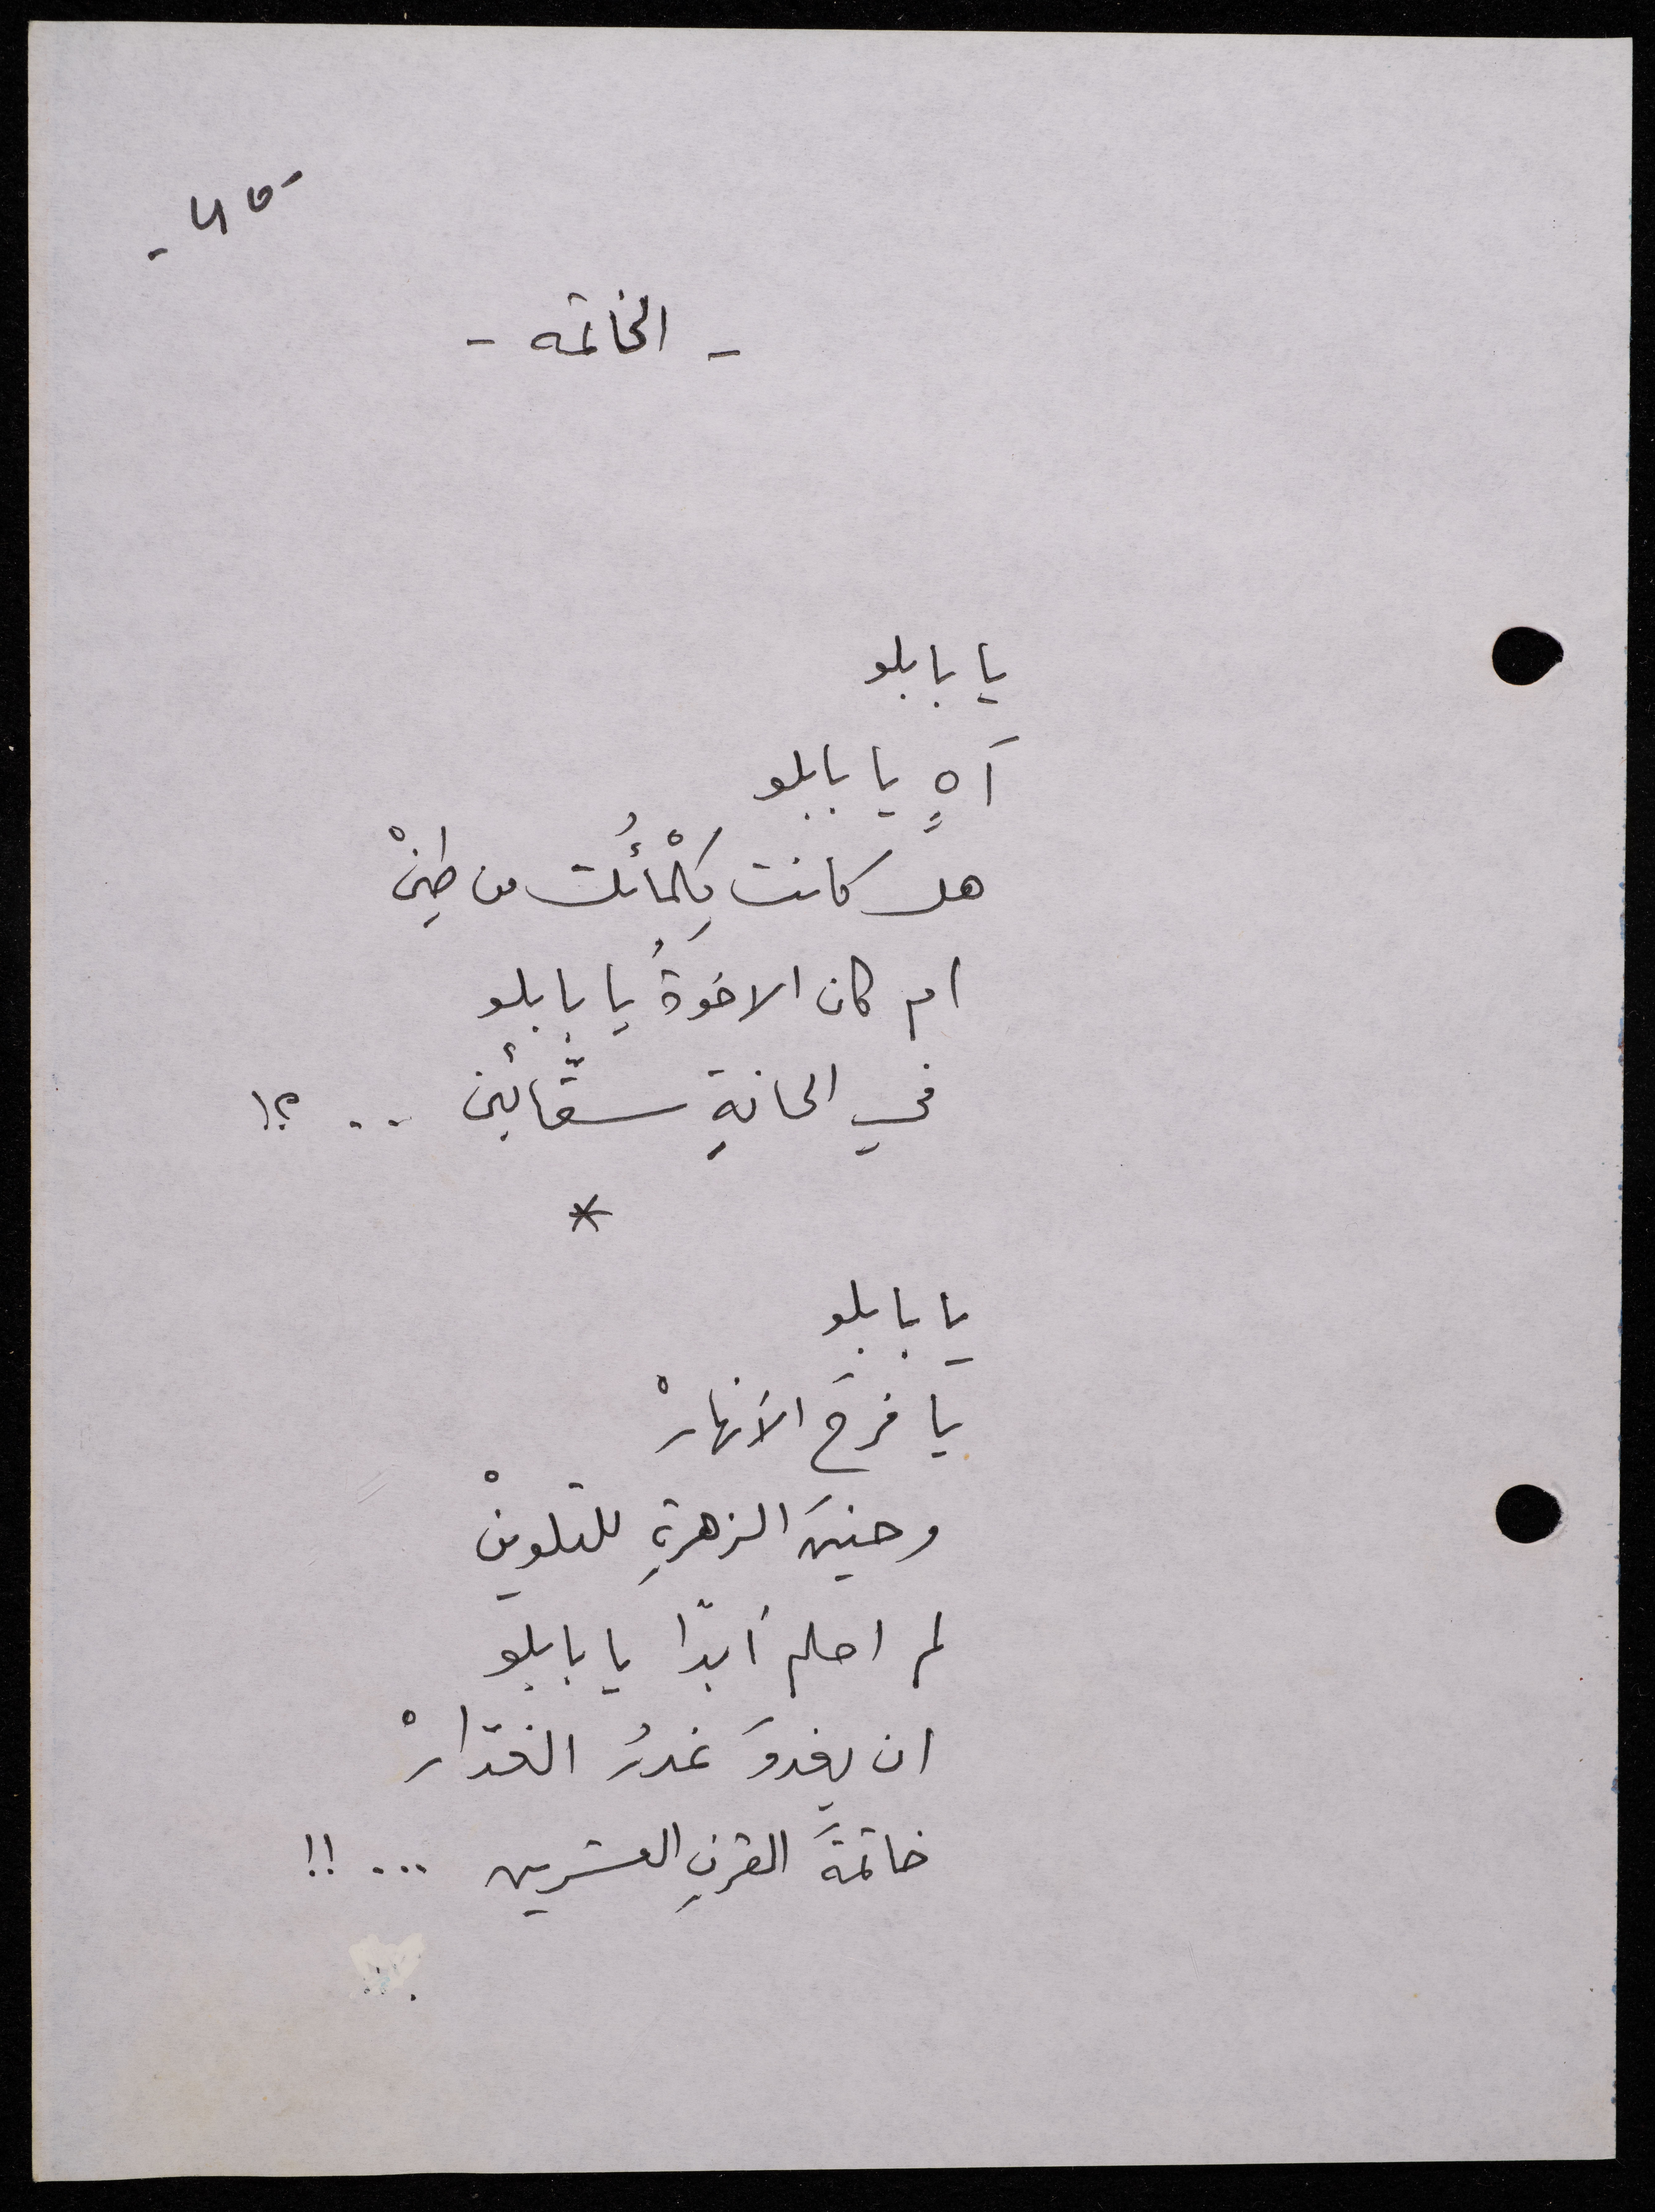 - الخاتمه -
يا بابلو
آهٍ يا بابلو
هل كانت من طينْ
ام كان الاخوةُ يا بابلو
في الحانةِ سقّائين .. ؟!
*
يا بابلو
يا فرحَ الأنهارْ
وحنينَ الزهرةِ للتلوينْ
لم احلم أبدًا يا بابلو
ان يغدوَ غدرُ الغدّارْ
خاتمةَ القرنِ العشرين ... !!